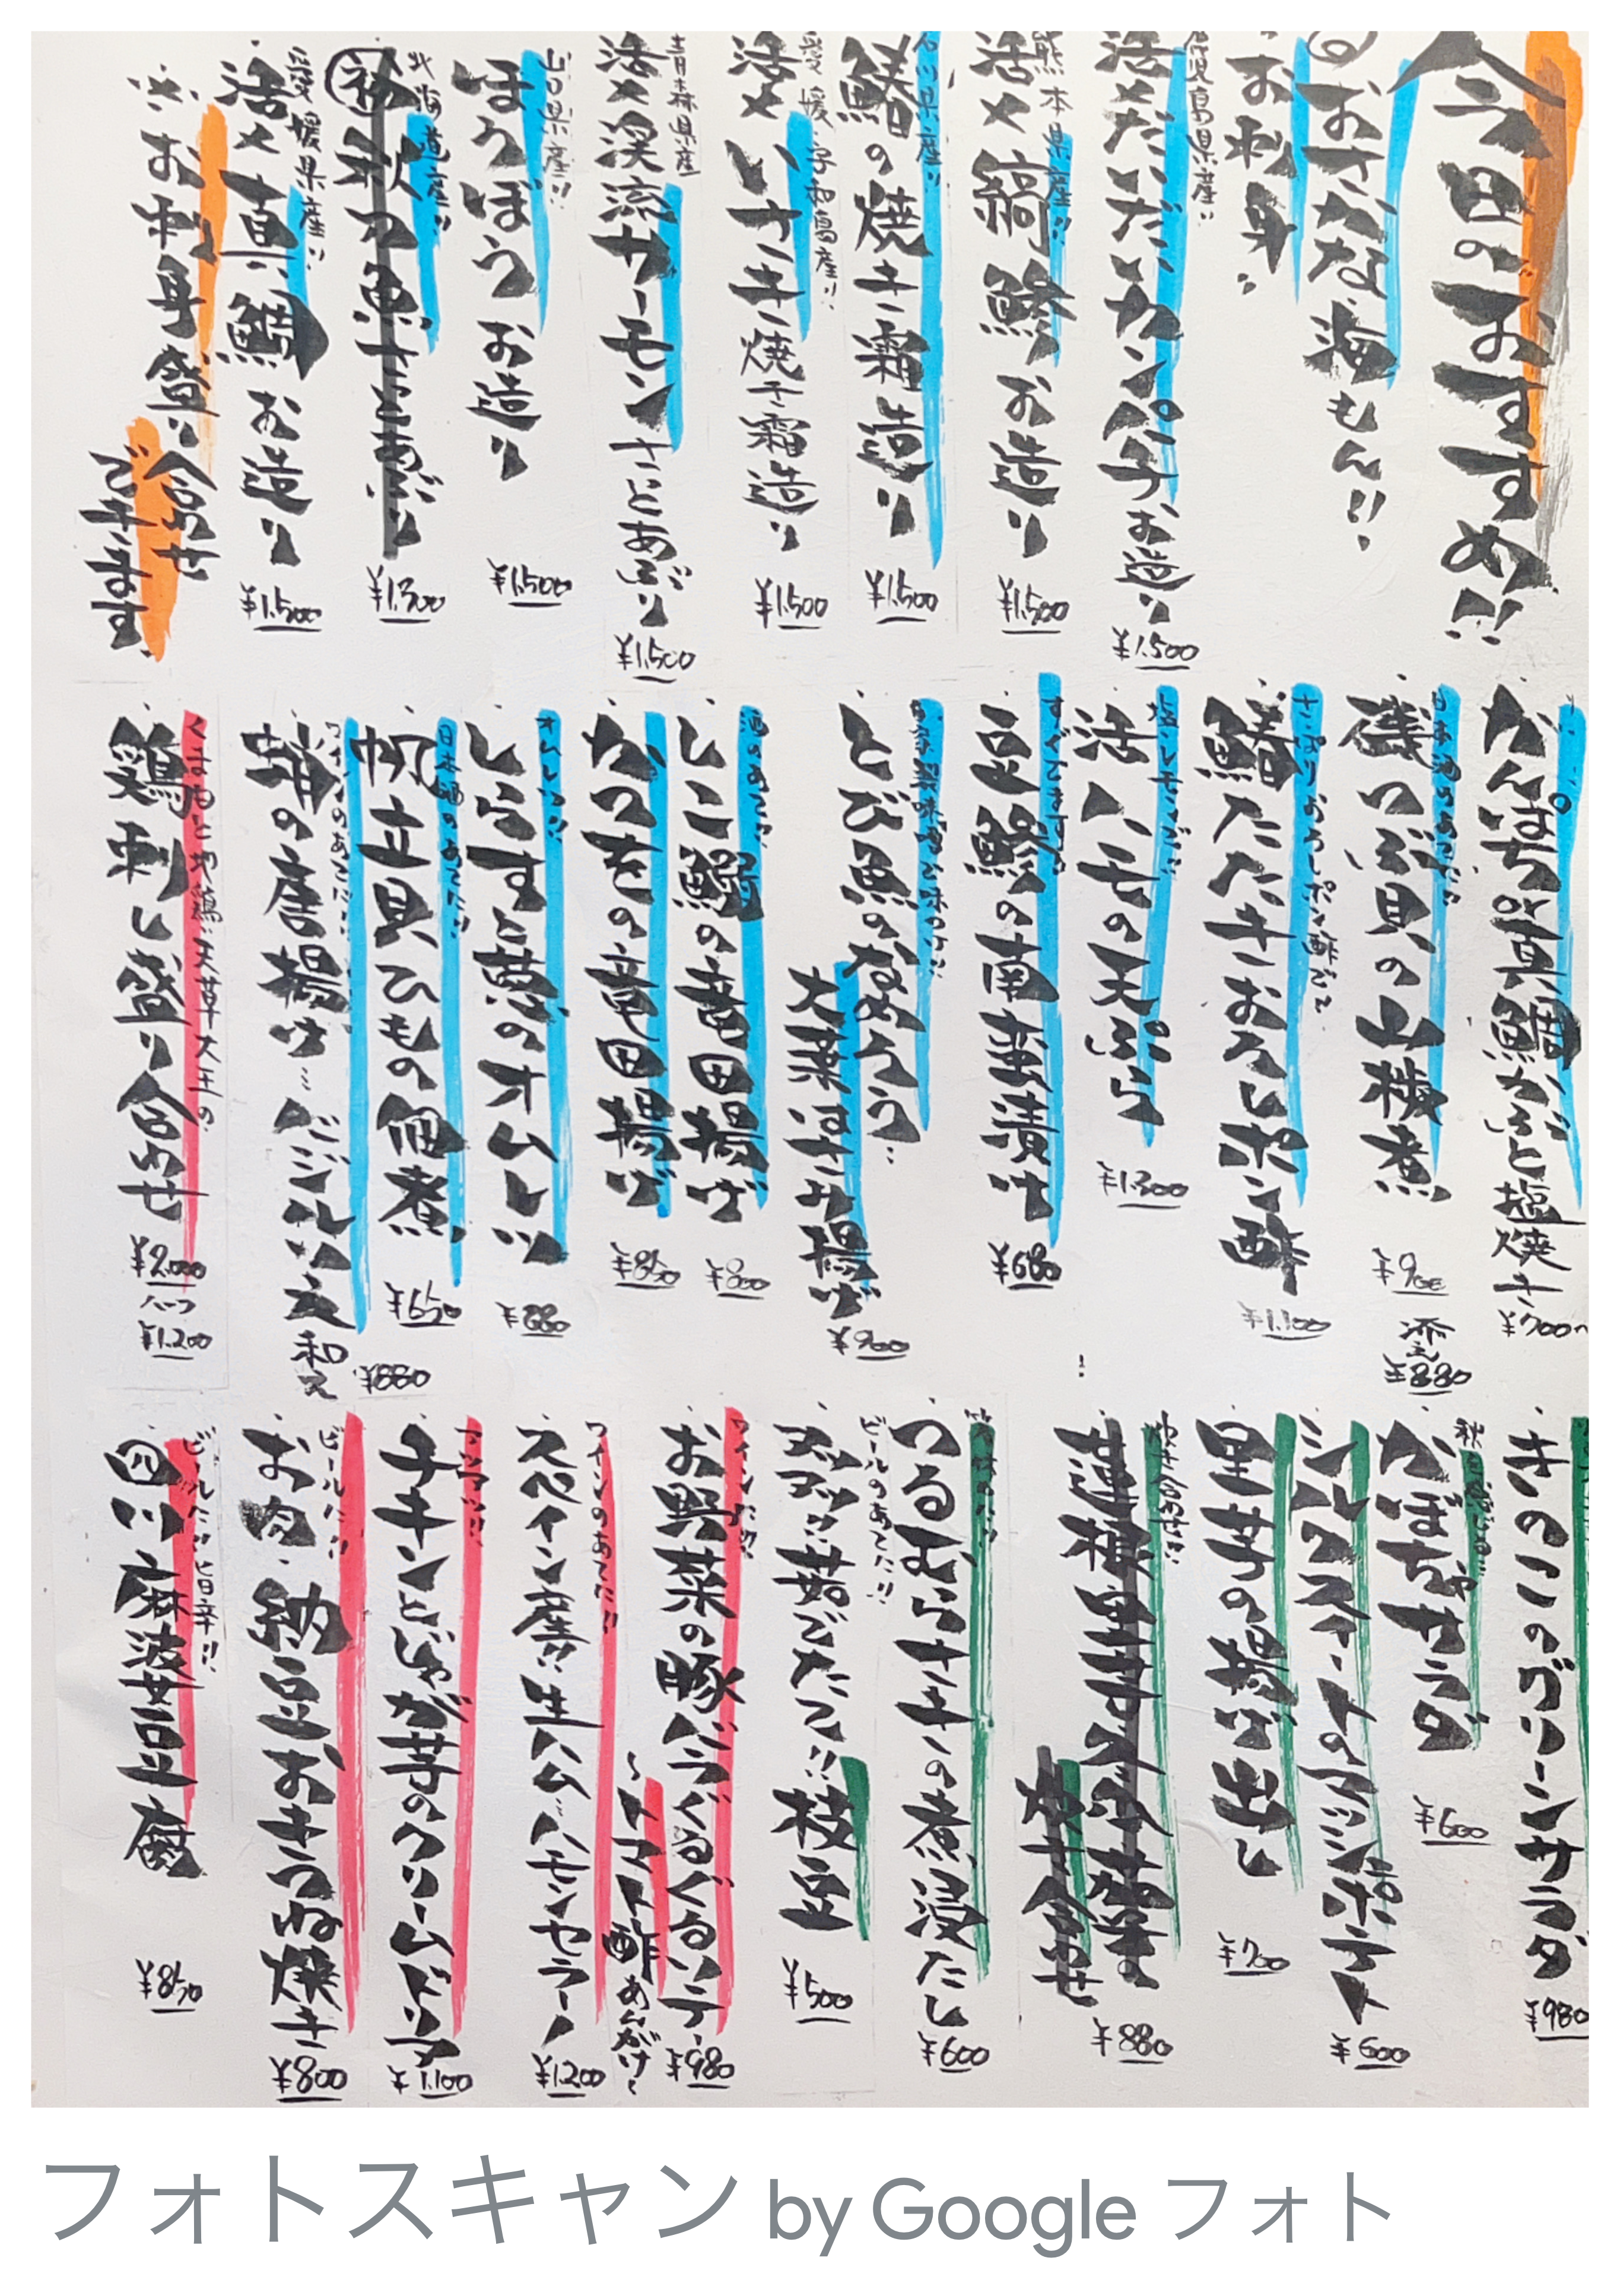 今日のおすすめ!!
おさかな海もん!!
お刺身
鹿児島県産!!
活〆だだいカンパチお造り
¥1.500
熊本県産!!
活〆縞鯵お造り
¥1.500
石川県産!!
鰆の焼き霜造り
¥1.500
愛媛・宇和島産!!
活〆いさき焼き霜造り
¥1.500
青森県産
活〆渓流サーモンさっとあぶり
¥1.500
山口県産!!
ほうぼうお造り
¥1.500
北海道産!!
初秋つ魚さっとあぶり
¥1.300
愛媛県産!!
活〆真鯛お造り
¥1.500
※お刺身盛り合わせ
できます
かんぱちor真鯛かぶと塩焼き
¥700
日本酒のあてに!!
磯つぶ貝の山椒煮
¥900
¥880
さっぱりおろしポン酢で
鰆たたきおろしポン酢
¥1.100
塩レモンで!!
活ハモの天ぷら
¥1.300
豆鯵の南蛮漬け
¥680
とび魚のなめろう…
大葉はさみ揚げ
¥900
酒のあてに!!
しこ鰯の竜田揚げ
¥800
かつをの竜田揚げ
¥850
オムレツ!!
しらすと葱のオムレツ
¥880
日本酒のあてに!!
帆立貝ひもの佃煮
¥650
ワインのあてに!!
蛸の唐揚げ…バジルソース和え
¥880
くまもと地鶏!!天草大王の
鶏刺し盛り合わせ
¥2.000
ハーフ
¥1.200
きのこのグリーンサラダ
¥980
かぼちゃサラダ
¥600
シルクスイートのマッシュポテト
¥600
里芋の揚げ出し
¥700
炊き合わせ!!
蓮根・里芋
炊き合わせ
¥880
つるむらさきの煮浸たし
¥600
ビールのあてに!!
アツアツ!!茹でたて!!枝豆
¥500
ワインに!!
お野菜の豚バラぐるぐるソテー
〜トマト酢あんがけ〜
¥980
ワインのあてに!!
スペイン産!!生ハム…ハモンセラーノ
¥1.200
アツアツ!!
チキンとじゃが芋のクリームドリア
¥1.100
ビールに!!
お肉・納豆おきつね焼き
¥800
ビールに!!旨辛!!
四川麻婆豆腐
¥850
フォトスキャン by Google フォト